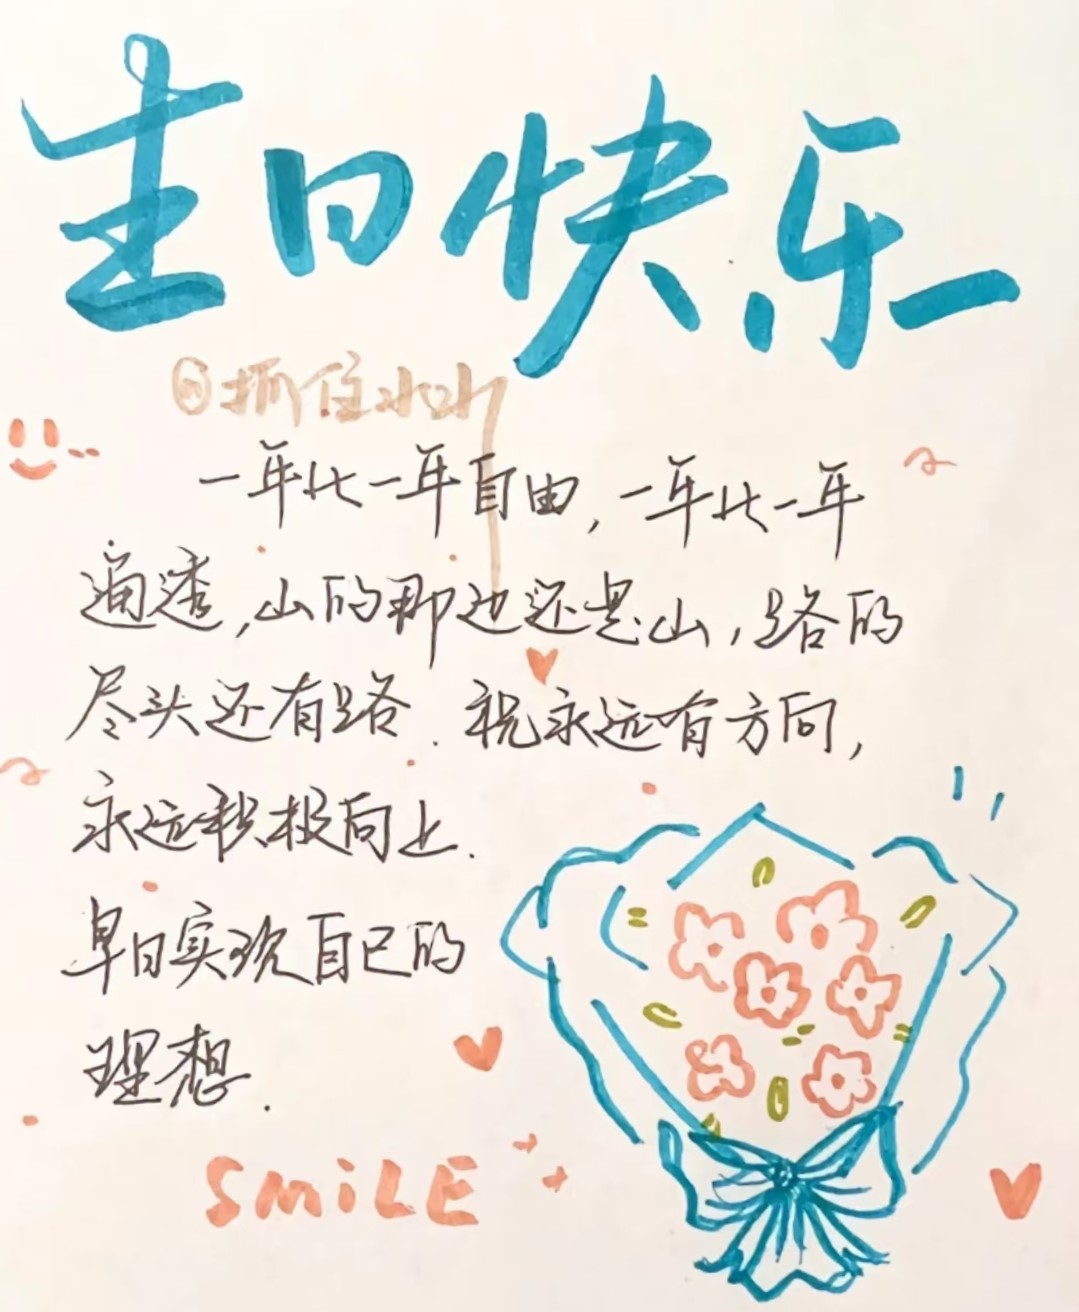 生日快乐
抓住水水
一年比一年自由,一年比一年
通透,山的那边还是山,路的
尽头还有路.祝永远有方向,
永远积极向上.
早日实现自己的
理想.
SMiLE